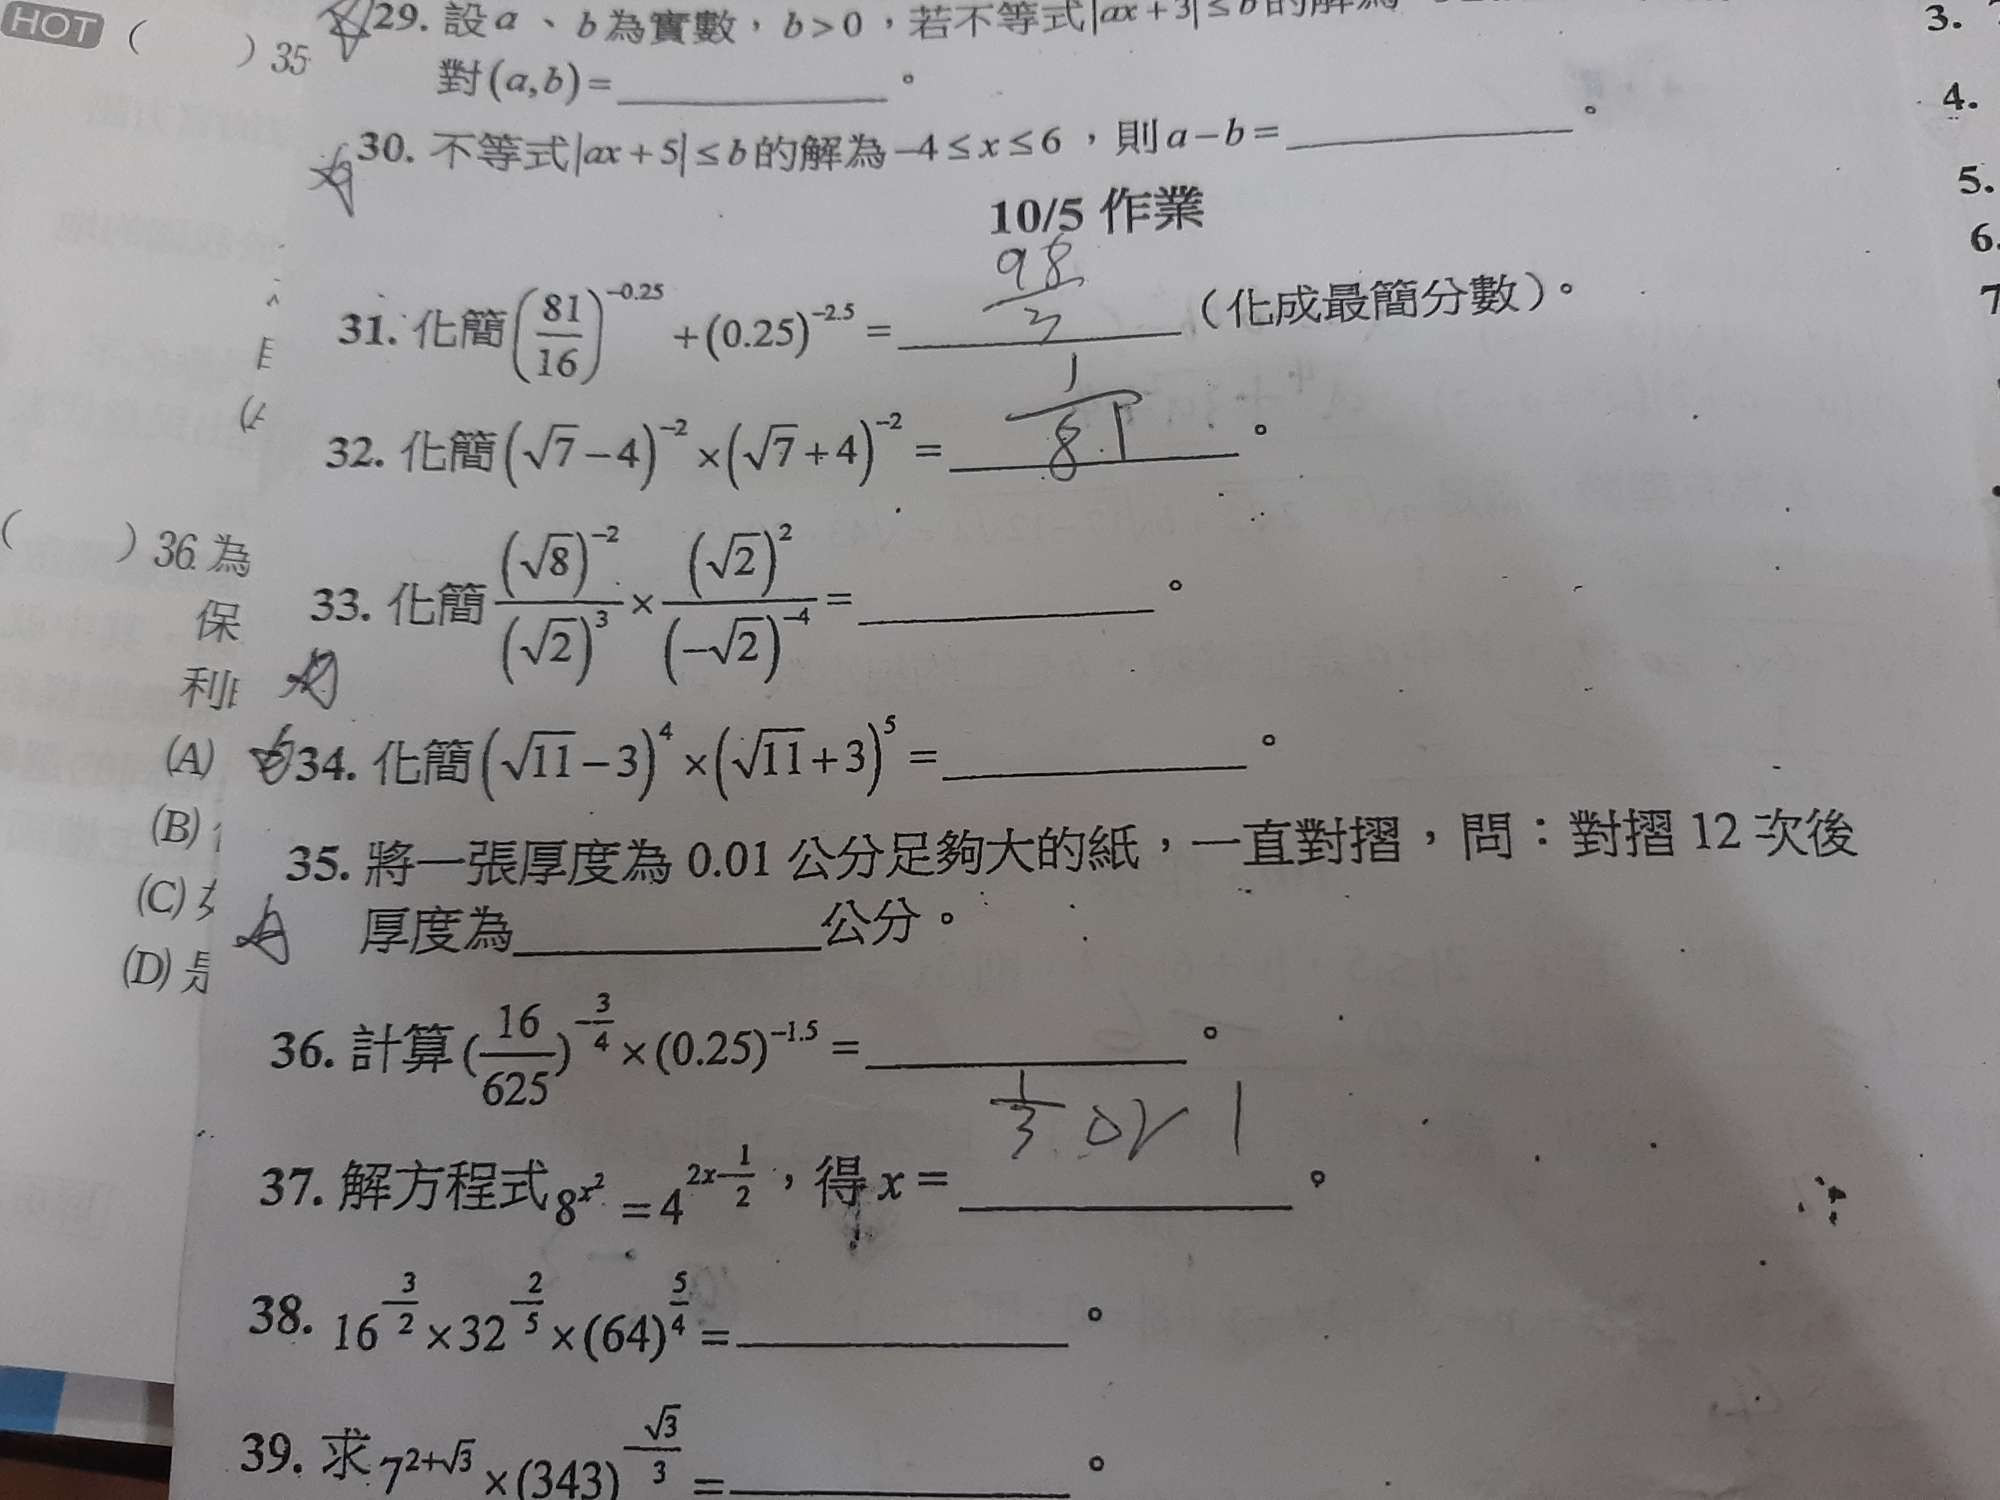 HOT ( ) 35
29. 設 a、b 為實數，b > 0，若不等式 |ax + 3| ≤ b 的解為
對 (a, b) = ________。
30. 不等式 |ax + 5| ≤ b 的解為 −4 ≤ x ≤ 6，則 a − b = ________。
10/5 作業
31. 化簡 (81/16)^(−0.25) + (0.25)^(−2.5) = 98/3 （化成最簡分數）。
32. 化簡 (√7 − 4)^(−2) × (√7 + 4)^(−2) = 1/81 。
33. 化簡 (√8)^(−2)/(√2)^3 × (√2)^2/(−√2)^(−4) = ________。
34. 化簡 (√11 − 3)^4 × (√11 + 3)^5 = ________。
35. 將一張厚度為 0.01 公分足夠大的紙，一直對摺，問：對摺 12 次後
厚度為________公分。
36. 計算 (16/625)^(−3/4) × (0.25)^(−1.5) = ________。
37. 解方程式 8^(x^2) = 4^(2x−1/2)，得 x = 1/3 or 1 。
38. 16^(−3/2) × 32^(−2/5) × (64)^(5/4) = ________。
39. 求 7^(2+√3) × (343)^(−√3/3) = ________。
( ) 36. 為
保
利
(A)
(B)
(C)
(D) 是
3.
4.
5.
6.
7